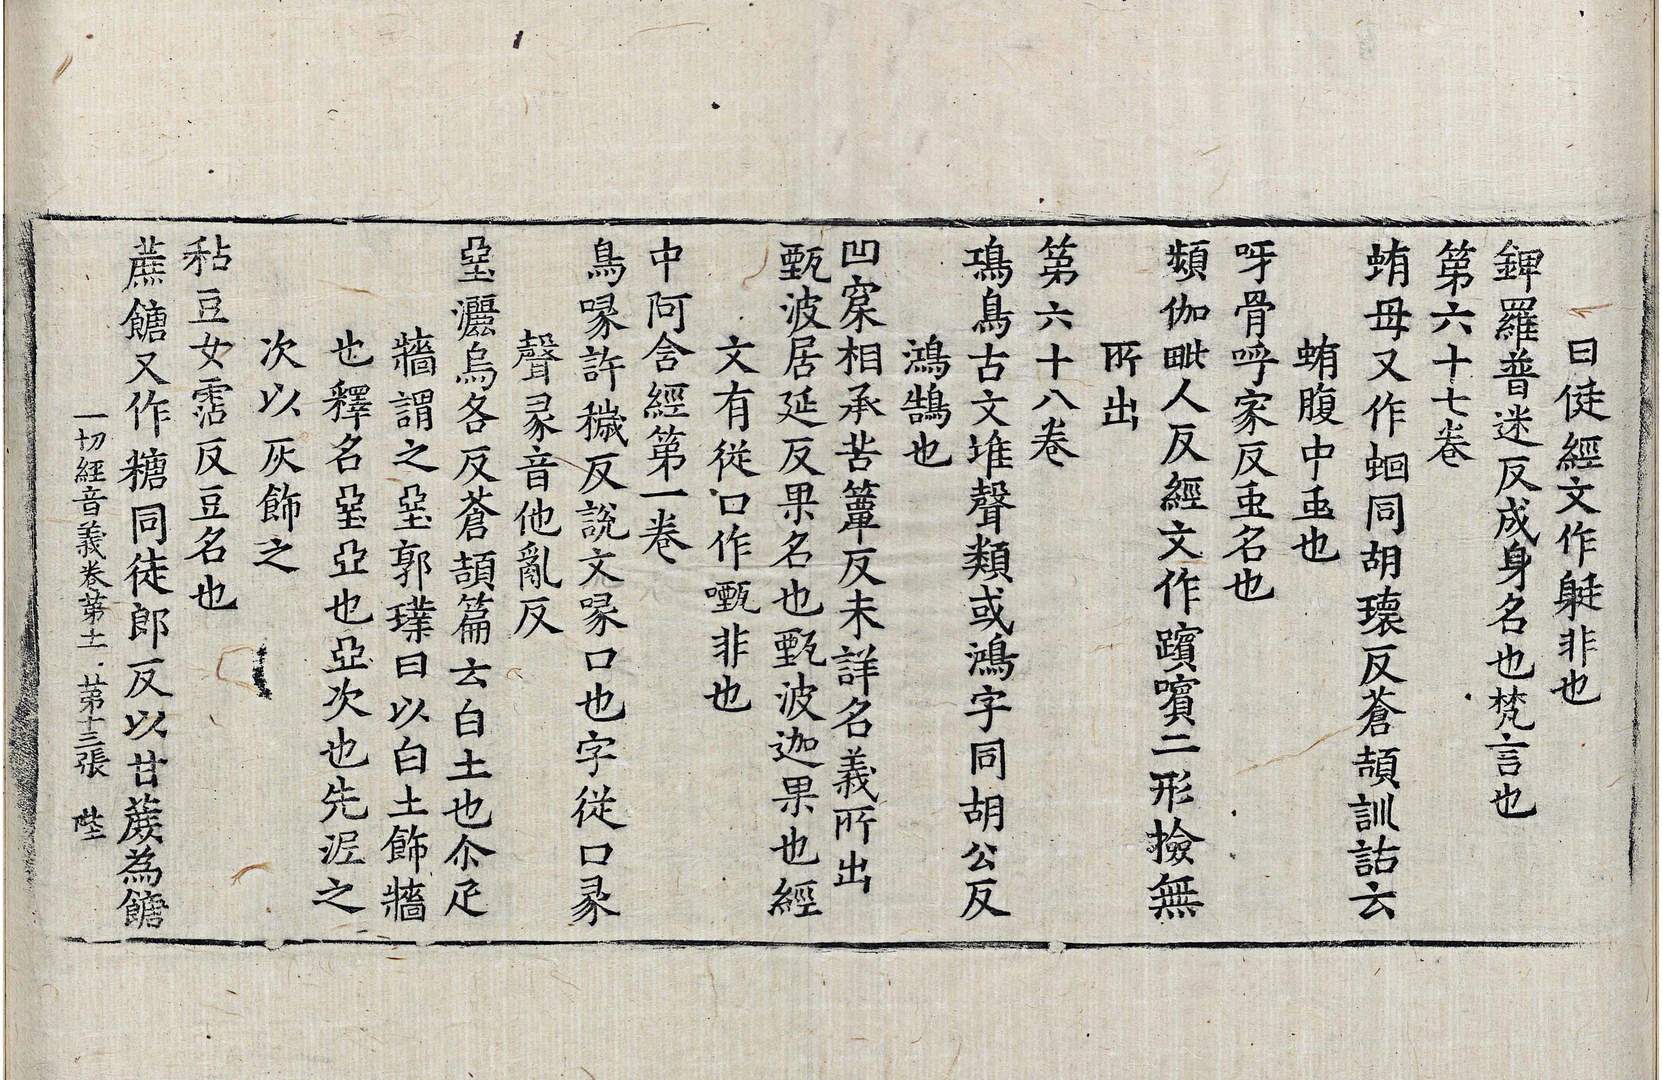 曰徒經文作𨈡非也
錍羅普迷反成身名也梵言也
第六十七卷
蛕母又作蛔同胡瓌反蒼頡訓詁云
蛕腹中䖝也
呀骨呼家反䖝名也
頻伽毗人反經文作蹟嚬二形撿無
所出
第六十八卷
鳿鳥古文堆聲類或鴻字同胡公反
鴻鵠也
凹窊相承苦簞反未詳名義所出
甄波居延反果名也甄波迦果也經
文有從口作㗨非也
中阿含經第一卷
鳥喙許穢反說文喙口也字從口彖
聲彖音他亂反
堊灑烏各反蒼頡篇云白土也尒疋
牆謂之堊郭璞曰以白土飾牆
也釋名堊亞也亞次也先泥之
次以灰飾之
秥豆女霑反豆名也
蔗餹又作糖同徒郎反以甘蔗為餹
一切經音義卷第十一 第十三張 陛